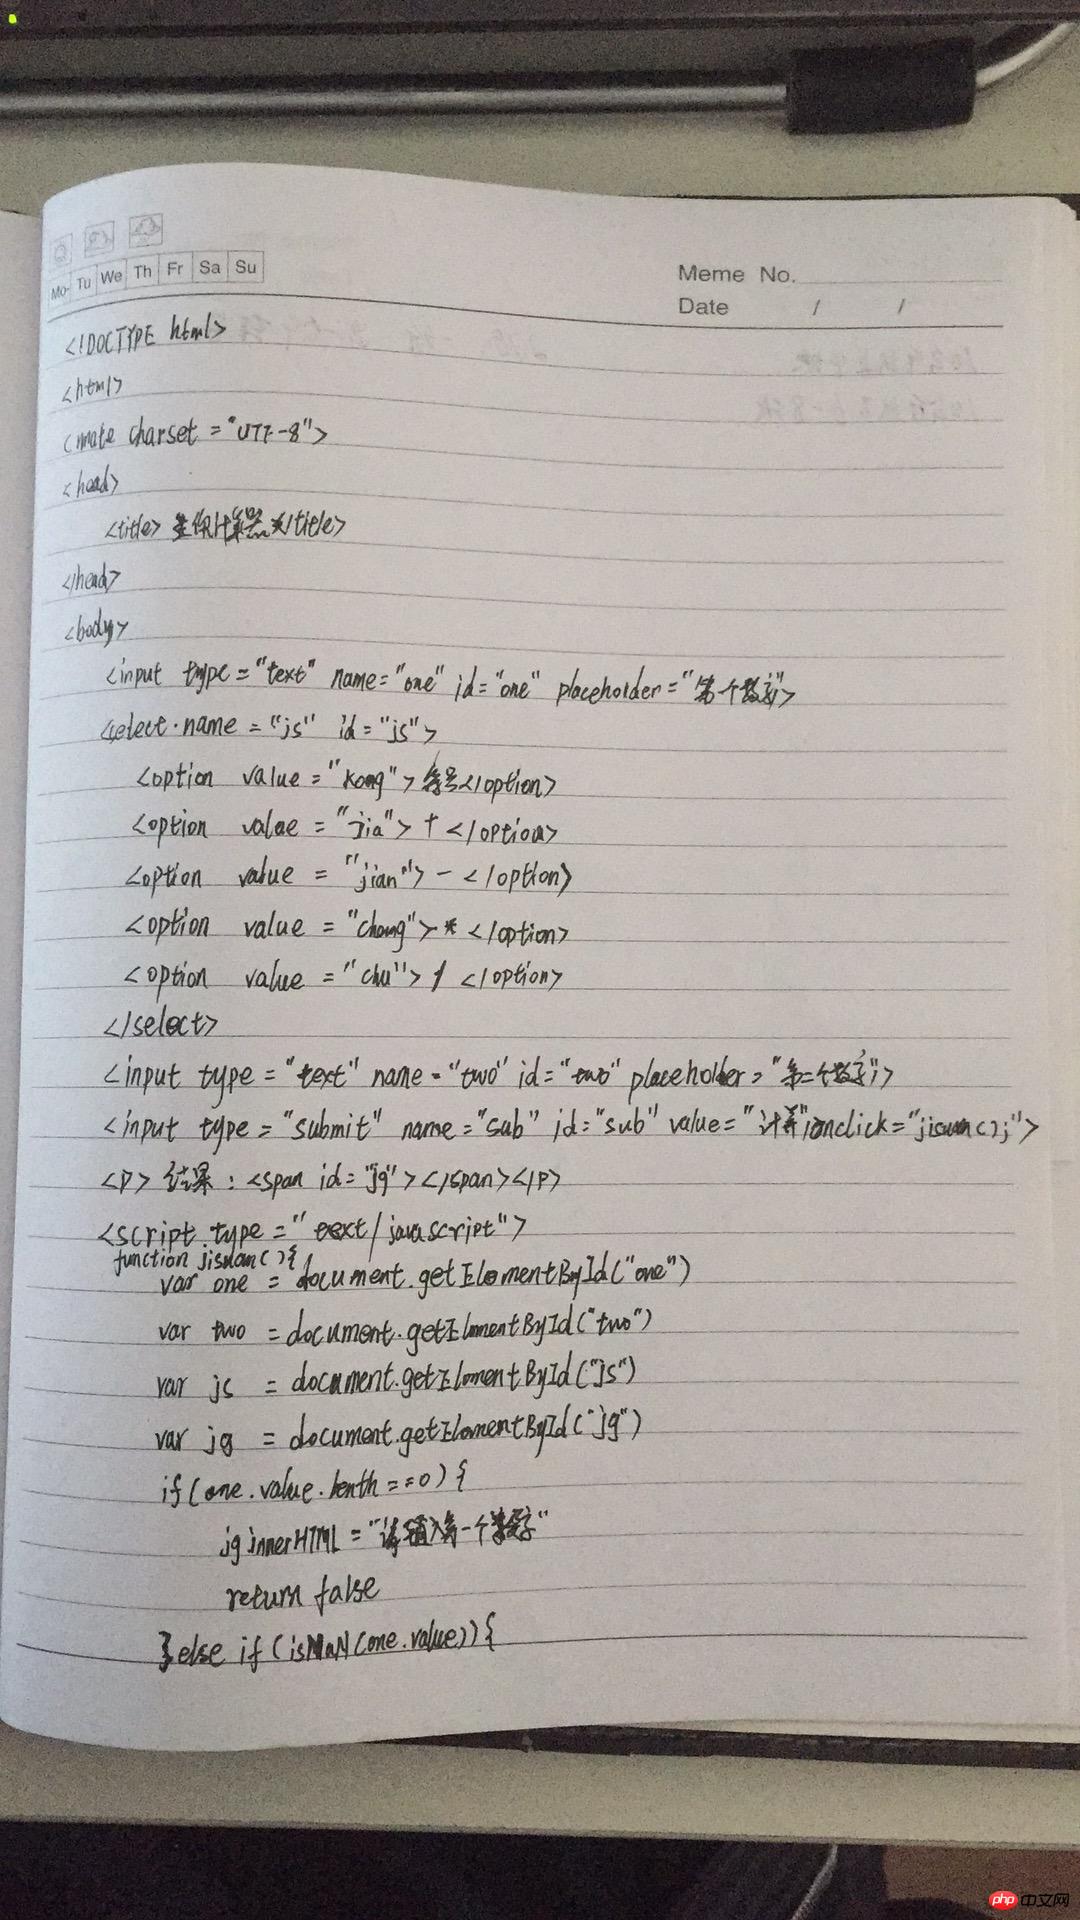 Mo Tu We Th Fr Sa Su
Meme No.
Date / /
<!DOCTYPE html>
<html>
<mate charset = "UTF-8">
<head>
<title> 迷你计算器 </title>
</head>
<body>
<input type = "text" name = "one" id = "one" placeholder = "第一个数字">
<select name = "js" id = "js">
<option value = "kong"> 符号 </option>
<option value = "jia"> + </option>
<option value = "jian"> - </option>
<option value = "cheng"> * </option>
<option value = "chu"> / </option>
</select>
<input type = "text" name = "two" id = "two" placeholder = "第二个数字">
<input type = "submit" name = "sub" id = "sub" value = "计算" onclick = "jisuan();">
<p> 结果 : <span id = "jg"></span></p>
<script type = "text/javascript">
function jisuan(){
var one = document.getElementById("one")
var two = document.getElmentById("two")
var js = document.getElementById("js")
var jg = document.getElementById("jg")
if (one.value.lenth == 0) {
jg innerHTML = "请输入第一个数字"
return false
} else if (isNaN(one.value)) {
php 中文网